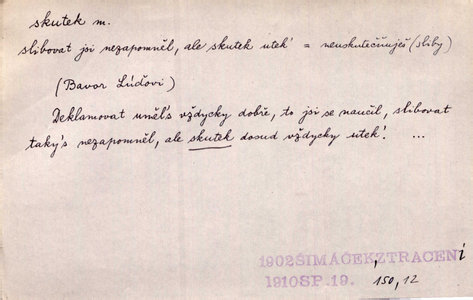 skutek m.
slibovat jsi nezapomněl, ale skutek utek' = neuskutečňuješ (sliby)
(Bavor Lúďovi)
Deklamovat uměl's vždycky dobře, to jsi se naučil, slibovat
taky's nezapomněl, ale skutek dosud vždycky utek'. ...
1902ŠIMÁČEK,ZTRACENÍ
1910SP.19. 150,12